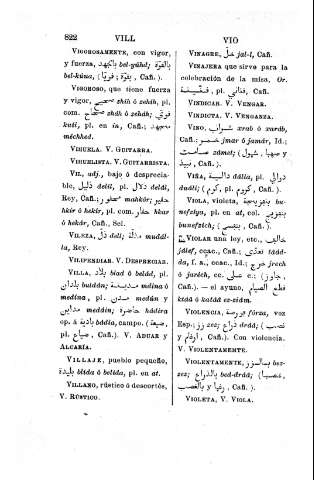 822 VILL
VIO
VIGOROSAMENTE, con vigor,
y fuerza, بالجهد bel-yühd;
بالقوة bel-kúwa; (بقوة ; قويا, Cañ.).
VIGOROSO, que tiene fuerza
y vigor, صحيح shíh ó sehéh, pl.
com. صحاح shéh ó zehéh; قوي
kuíi, pl. en in, Cañ.;
مجهد méched.
VIHUELA. V. GUITARRA.
VIHUELISTA. V. GUITARRISTA.
VIL, adj., bajo ó desprecia-
ble, ذليل delíl, pl. دلال delál,
Rey, Cañ.; محقور mahkúr; حقير
hkír ó hekír, pl. com. حقار hkar
ó hekár, Cañ., Sel.
VILEZA, ذل dell; مذلة mudál-
la, Rey.
VILIPENDIAR. V. DESPRECIAR.
VILLA, بلاد blad ó beléd, pl.
بلدان buldán; مدينة medína ó
medína, pl. مدن medún y
مداين medáin; حاضرة hádira
op. á بادية bádia, campo. (ضيعة,
pl. ضياع, Cañ.). V. ADUAR y
ALCARÍA.
VILLAJE, pueblo pequeño,
بليدة blida ó belida, pl. en at.
VILLANO, rústico ó descortés,
V. RÚSTICO.
VINAGRE, خل jal-l, Cañ.
VINAJERA que sirve para la
celebración de la misa, Or.
pl. فناني, Cañ.
VINDICAR. V. VENGAR.
VINDICTA. V. VENGANZA.
VINO, شراب xrab ó xaráb,
Cañ.; خمر jmar ó jamár, Id.;
صامت zámet; (شمول y صهبا y
نبيذ, Cañ.).
VIÑA, دالية dália, pl. دوالي
duáli; (كرم, pl. كروم, Cañ.).
VIOLA, violeta, بنفزيجة bu-
nefziya, pl. en at, col. بنفزيج
bunefzích, Cañ.; (بنفسج, Cañ.).
VIOLAR una ley, etc., خالف
jálef, ec., Cañ.; تعدى taád-
da, f. a., ec., Id.; جرح jrech
ó jaréch, ec. على c.; (جاز,
Cañ.). — el ayuno, قطع الصيام
ktáâ ó katáâ ez-zizám.
VIOLENCIA, فورصة fórza, voz
Esp.; زز zez; ذراع drââ; (غصب
y ارغام, Cañ.). Con violencia.
V. VIOLENTAMENTE.
VIOLENTAMENTE, بالزز bez-
zez; بالذراع bed-drââ; (غصبا
y رغما y بالغصب, Cañ.).
VIOLETA, V. VIOLA.